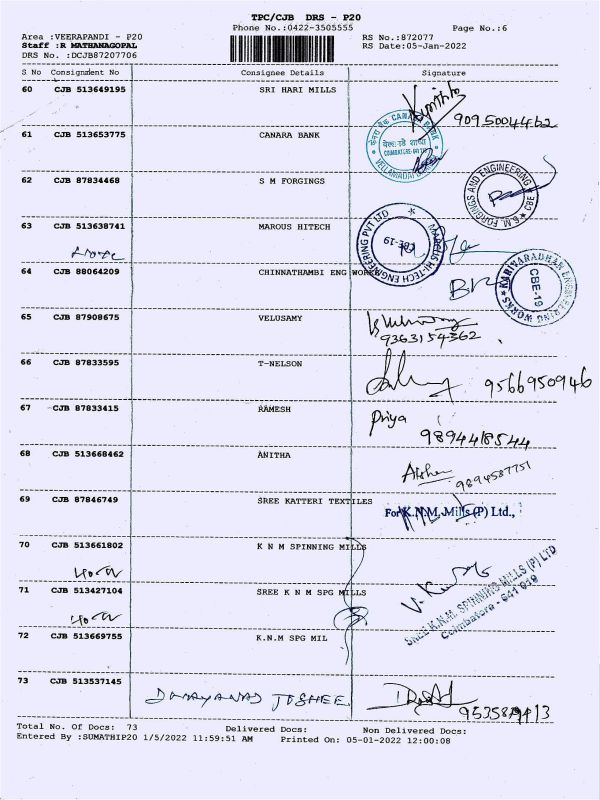 TPC/CJB DRS - P20
Phone No.:0422-3505555
Page No.:6
Area :VEERAPANDI - P20
RS No.:872077
Staff :R MATHANAGOPAL
RS Date:05-Jan-2022
DRS No. :DCJB87207706
S No Consignment No Consignee Details Signature
60 CJB 513649195 SRI HARI MILLS
9095004462
61 CJB 513653775 CANARA BANK
CANARA BANK
62 CJB 87834468 S M FORGINGS
S.M. FORGINGS AND ENGINEERING CBE
63 CJB 513638741 MAROUS HITECH
MARCUS HI-TECH ENGINEERING PVT LTD
CBE-19
64 CJB 88064209 CHINNATHAMBI ENG WORKS
KARIVARADHAN ENGINEERING WORKS
CBE-19
65 CJB 87908675 VELUSAMY
9363154362
66 CJB 87833595 T-NELSON
9566950946
67 CJB 87833415 RAMESH
Priya
9894418544
68 CJB 513668462 ANITHA
9894587751
69 CJB 87846749 SREE KATTERI TEXTILES
For K.N.M. Mills (P) Ltd.,
70 CJB 513661802 K N M SPINNING MILLS
71 CJB 513427104 SREE K N M SPG MILLS
SREE K.N.M. SPINNING MILLS (P) LTD
Coimbatore - 641 019
72 CJB 513669755 K.N.M SPG MIL
73 CJB 513537145
JOSHEE
Total No. Of Docs: 73 Delivered Docs: Non Delivered Docs:
Entered By :SUMATHIP20 1/5/2022 11:59:51 AM Printed On: 05-01-2022 12:00:08